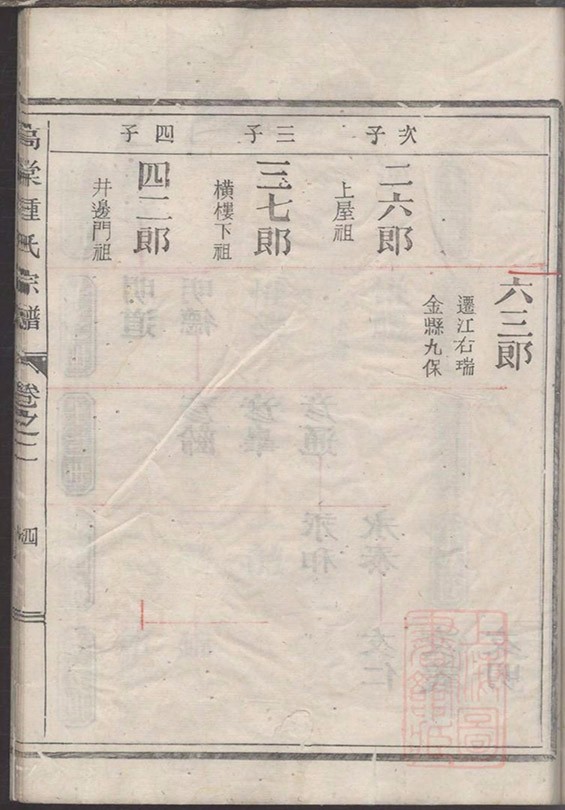 六三郎
遷江右瑞
金縣九保
次子
二六郎
上屋祖
三子
三七郎
橫樓下祖
四子
四二郎
井邊門祖
高棠鍾氏宗譜
卷之二
四